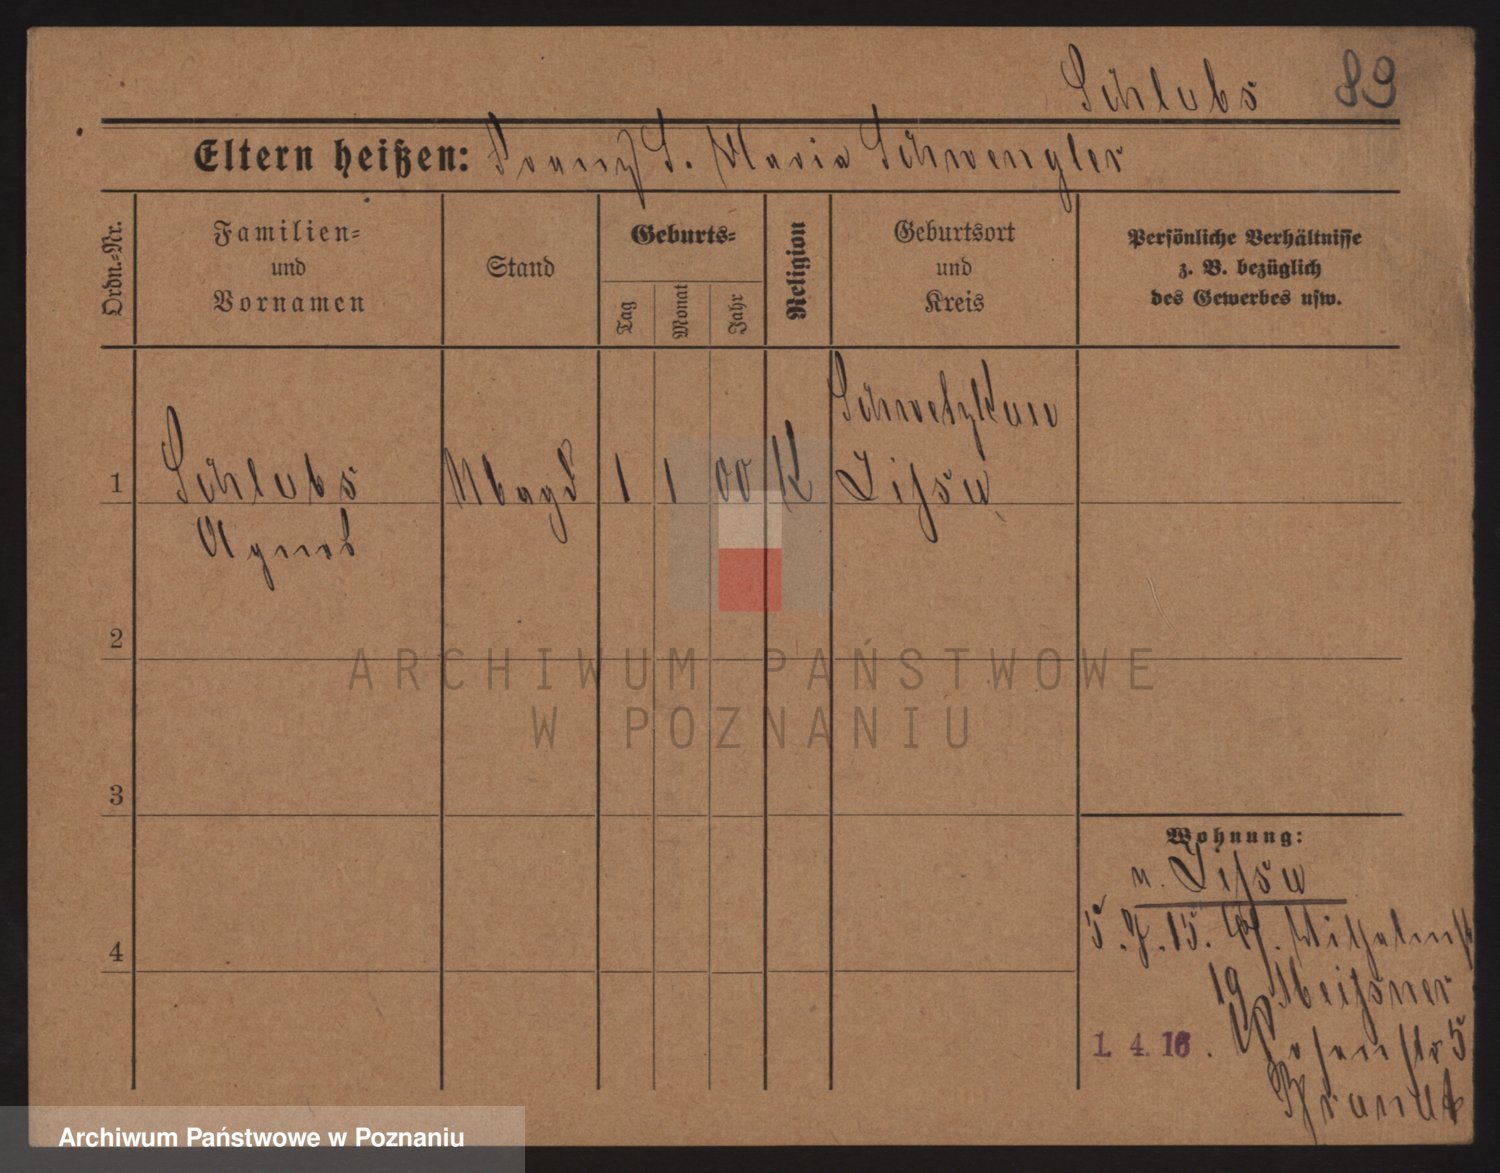 Schlubs 89
Eltern heißen: Franz S. Maria Schwengler
Ordn.=Nr.
Familien=
und
Vornamen
Stand
Geburts=
Tag
Monat
Jahr
Religion
Geburtsort
und
Kreis
Persönliche Verhältnisse
z. B. bezüglich
des Gewerbes usw.
Schwetzkau
1 Schlubs Magd 1 1 00 K Lissa
Agnes
2
ARCHIWUM PAŃSTWOWE
W POZNANIU
3
Wohnung:
n. Lissa
4 5.7.15. Wilhelmstr
19 Meissner
1. 4. 16. Posenstr 5
Brandt
Archiwum Państwowe w Poznaniu